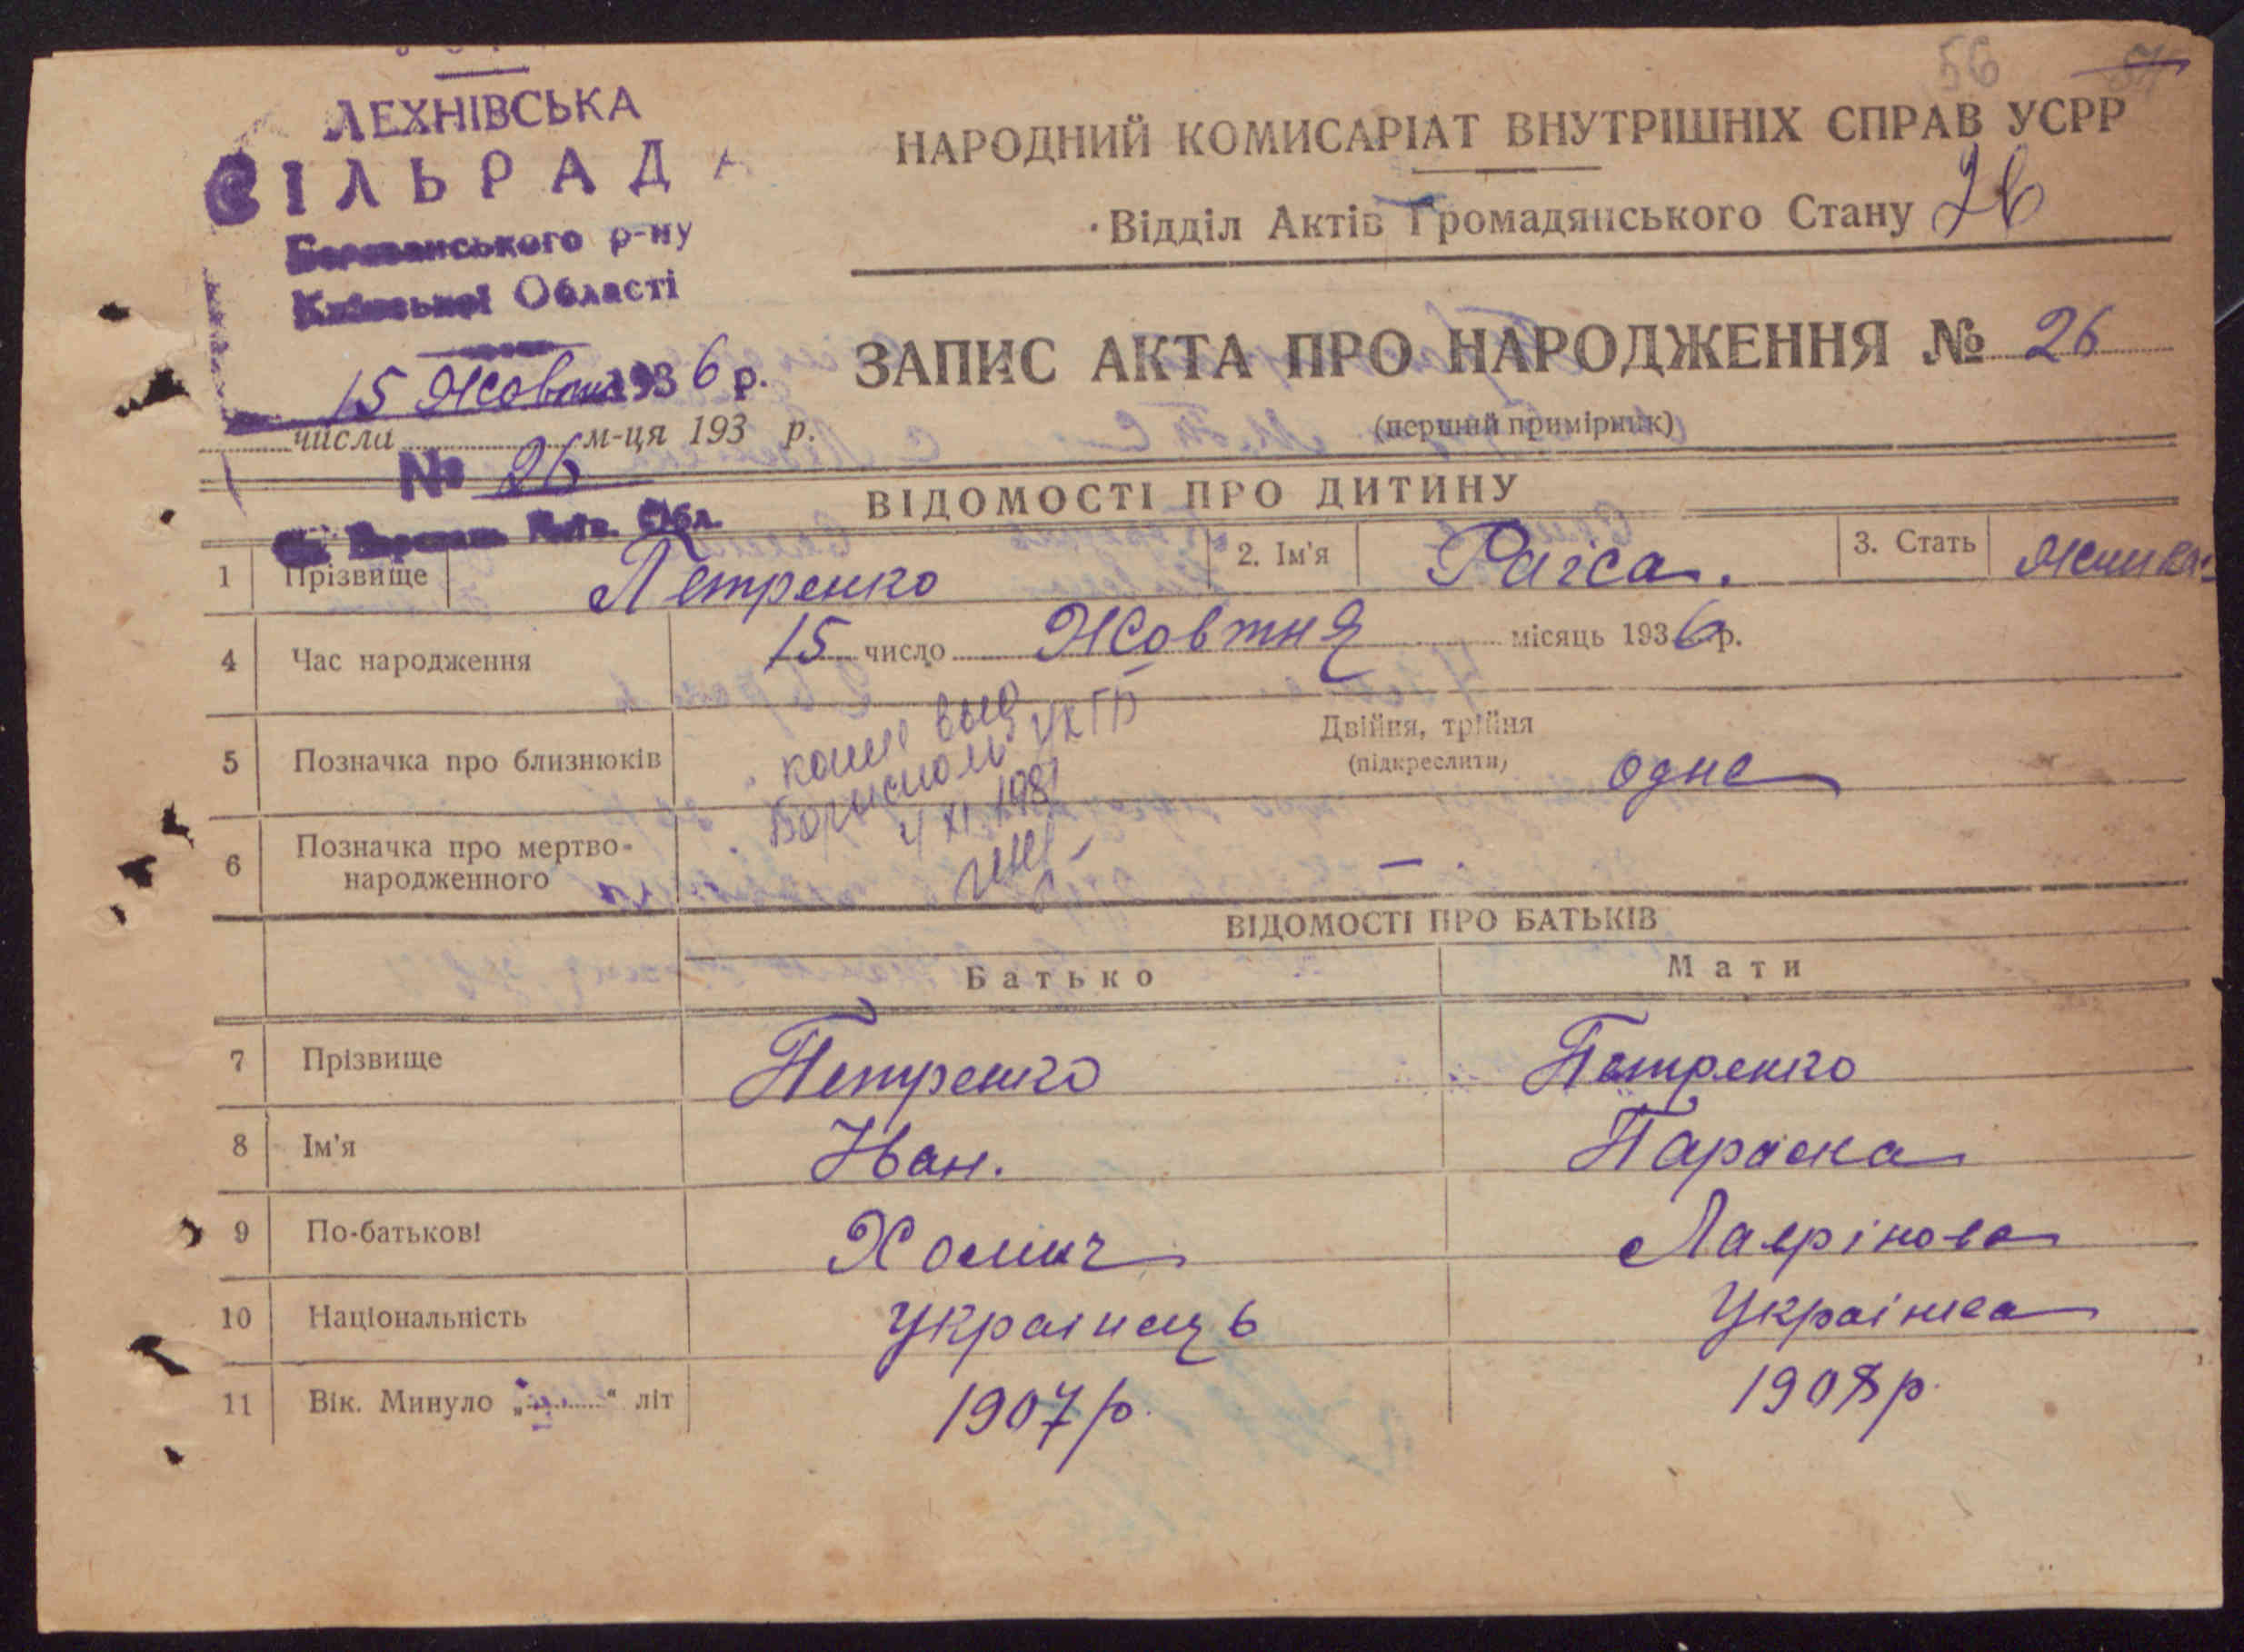 56
ЛЕХНІВСЬКА
СІЛЬРАДА
р-ну
Київської Області
15 Жовтня 1936 р.
числа м-ця 193 р.
№ 26
НАРОДНИЙ КОМИСАРІАТ ВНУТРІШНІХ СПРАВ УСРР
Відділ Актів Громадянського Стану 26
ЗАПИС АКТА ПРО НАРОДЖЕННЯ № 26
(перший примірник)
ВІДОМОСТІ ПРО ДИТИНУ
1 Прізвище Петренко 2. Ім'я Раїса. 3. Стать
4 Час народження 15 число Жовтня місяць 1936 р.
5 Позначка про близнюків Двійня, трійня
(підкреслити) одне
4 XI 1981
6 Позначка про мертво-
народженного — .
ВІДОМОСТІ ПРО БАТЬКІВ
Батько Мати
7 Прізвище Петренко Петренко
8 Ім'я Іван. Параска
9 По-батькові Хомич Лаврінова
10 Національність Украінець Украінка
11 Вік. Минуло „ “ літ 1907 р. 1908 р.